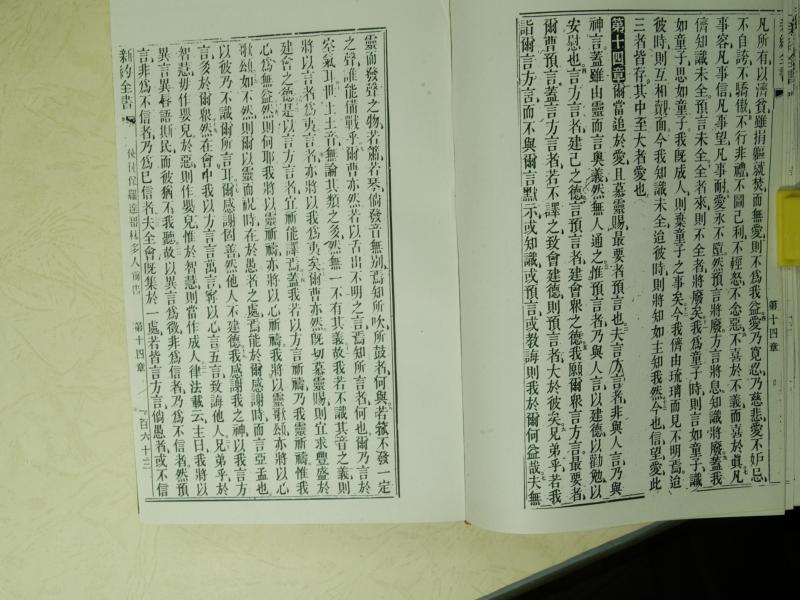 凡所有以濟貧雖捐軀就焚而無愛則不爲我益愛乃寬忍乃慈悲愛不妒忌
不自誇不驕傲不行非禮不圖己利不輕怒不念惡不喜於不義而喜於眞凡
事容凡事信凡事望凡事耐愛永不墮然預言將廢方言將息知識將廢蓋我
儕知識未全預言未全全者來則不全者將廢矣我爲童子時則言如童子識
如童子思如童子我既成人則棄童子之事矣今我儕由琉璃而見不明焉迨
彼時則互相覿面今我知識未全迨彼時則將知如主知我然今也信望愛此
三者皆存其中至大者愛也
第十四章爾當追於愛且慕靈賜最要者預言也夫言方言者非與人言乃與
神言蓋雖由靈而言奧義然無人通之惟預言者乃與人言以建德以勸勉以
安慰也言方言者建己之德預言者建會衆之德我願爾衆言方言最要者
爾曹預言蓋言方言者若不譯之致會建德則預言者大於彼矣兄弟乎若我
詣爾言方言而不與爾言默示或知識或預言或教誨則我於爾何益哉夫無
新約全書
第十四章
靈而發聲之物若簫若琴倘發音無別焉知所吹所鼓者何與若號不發一定
之聲誰能備戰乎爾曹亦然若以舌出不明之言焉知所言者何也爾乃言於
空氣耳世上土音無論其類之多然無一不有其義故我若不識其音之義則
將以言者爲夷言者亦將以我爲夷矣爾曹亦然既切慕靈賜則宜求豐盛於
建會之德是以言方言者宜祈能譯焉蓋我若以方言祈禱乃我靈祈禱惟我
心爲無益然則何耶我將以靈祈禱亦將以心祈禱我將以靈歌頌亦將以心
歌頌如不然則爾以靈而祝時在於愚者之處焉能於爾感謝時而言亞孟也
以彼乃不識爾所言耳爾感謝固善然他人不建德我感謝我之神以我言方
言多於爾衆然在會中我以方言言萬言寧以心言五言致誨他人兄弟乎於
智慧毋作嬰兒於惡則作嬰兒惟於智慧則當作成人律法載云主曰我將以
異言異唇語斯民而彼猶不我聽故以異言爲徵非爲信者乃爲不信者然預
言非爲不信者乃爲已信者夫全會既集於一處若皆言方言倘愚者或不信
新約全書
使徒保羅達哥林多人前書
第十四章
一百六十三